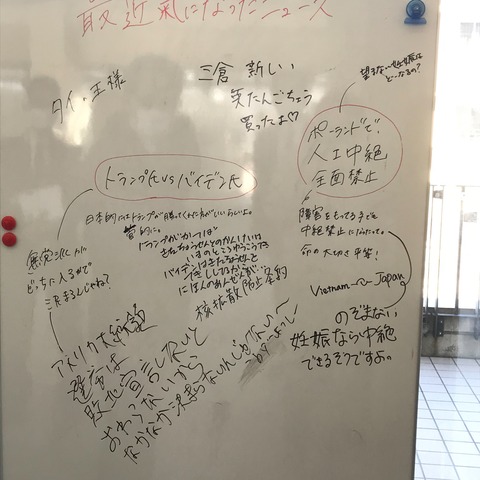 最近氣になったニュース
タイ、王様
三倉 新しい
笑たんごちょう
買ったよ♡
望まない妊娠は
どうなるの?
ポーランドで!
人工中絶
全面禁止
トランプ氏 vs バイデン氏
日本的にはトランプが勝ってくれた方がいいらしいよ。
トランプがかつてば
きたちょうせんとのかんけいは
いまのところかっこうでも
バイデンはきたちょうせんと
にほんのあんぜんが
核拡散防止条約
無党派が
どっちに入るかで
決まるんじゃね?
障害をもってる子でも
中絶禁止になったって。
命の大切さ 平等!
Vietnam Japan
のぞまない
妊娠なら中絶
できるそうですよ。
アメリカ大統領
選挙は
敗北宣言しないと
おわらないから
なかなか決まらないんじゃない